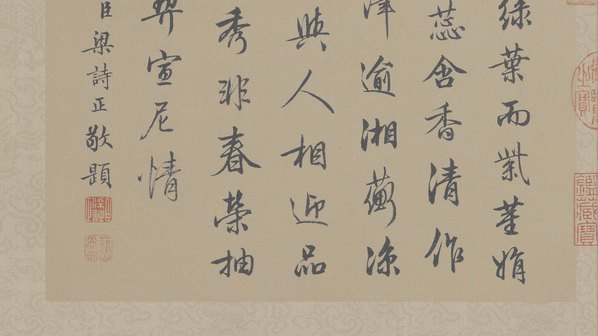 綠葉而紫莖娟
蕊含香清作
逾湘蘅涼
與人相迎品
秀非春榮抽
契宣尼情
臣梁詩正敬題